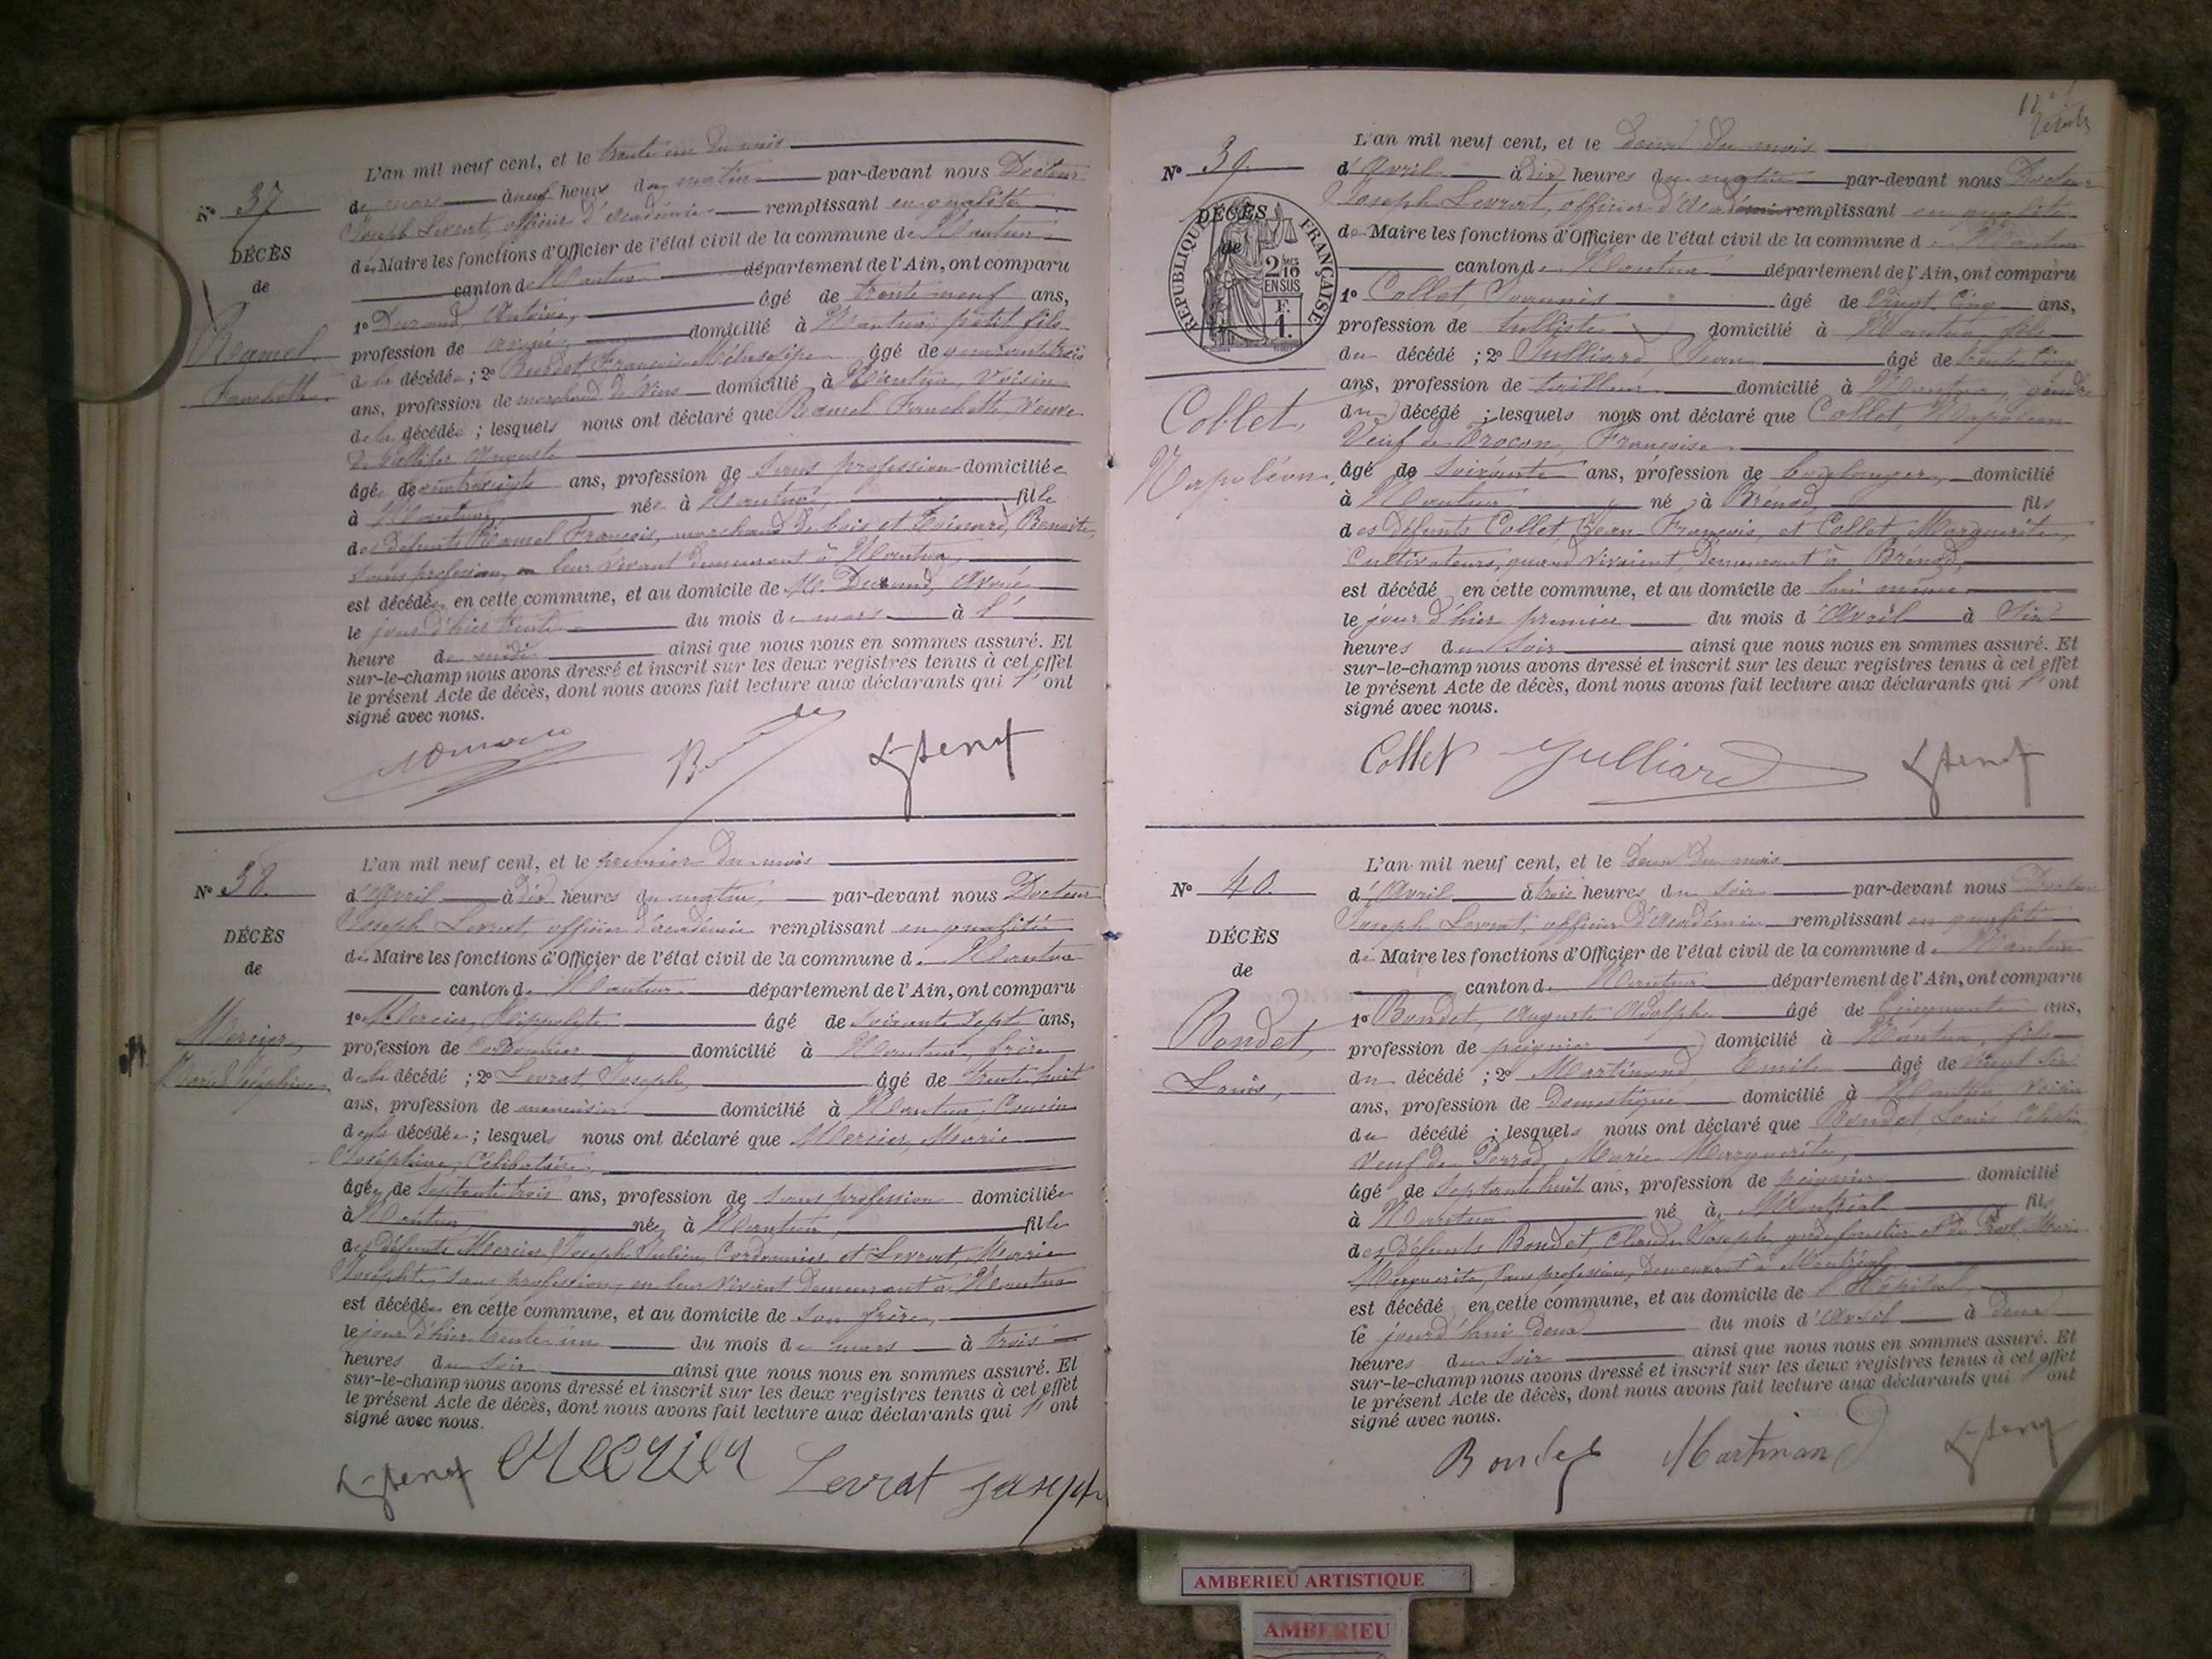 L'an mil neuf cent, et le trente un du mois
N° 37
de mars à neuf heures du matin par-devant nous Docteur
Joseph Levrat, officier d'Académie remplissant en qualité
de Maire les fonctions d'Officier de l'état civil de la commune de Nantua
canton de Nantua département de l'Ain, ont comparu
DÉCÈS
de
Ramel
Franchette
1° Durand, Antoine, âgé de trente neuf ans,
profession de avoué domicilié à Nantua, petit fils
de la décédée ; 2° Burdet, François âgé de quarante trois
ans, profession de marchand de vins domicilié à Nantua, voisin
de la décédée ; lesquels nous ont déclaré que Ramel Franchette, Veuve
Auguste
âgée de ans, profession de sans profession domiciliée
à Nantua, née à Nantua, fille
des défunts Ramel François, marchand de bois et Benoite,
sans profession, en leur vivant demeurant à Nantua,
est décédée en cette commune, et au domicile de M. Durand, avoué
le jour d'hier trente du mois de mars à l'
heure de midi ainsi que nous nous en sommes assuré. Et
sur-le-champ nous avons dressé et inscrit sur les deux registres tenus à cet effet
le présent Acte de décès, dont nous avons fait lecture aux déclarants qui l'ont
signé avec nous.
L'an mil neuf cent, et le premier du mois
N° 38.
d'Avril à dix heures du matin, par-devant nous Docteur
Joseph Levrat, officier d'académie remplissant en qualité
de Maire les fonctions d'Officier de l'état civil de la commune de Nantua
canton de Nantua département de l'Ain, ont comparu
DÉCÈS
de
Mercier,
Marie Joséphine
1° Mercier, Hippolyte âgé de soixante sept ans,
profession de Cordonnier domicilié à Nantua, frère
de la décédé ; 2° Levrat, Joseph, âgé de trente huit
ans, profession de menuisier domicilié à Nantua, Cousin
de la décédée ; lesquels nous ont déclaré que Mercier, Marie
Joséphine, Célibataire,
âgée de septante trois ans, profession de sans profession domiciliée
à Nantua, née à Nantua, fille
des défunts Mercier, Joseph Julien, Cordonnier et Levrat, Marie
Josephte, sans profession, en leur vivant demeurant à Nantua
est décédée en cette commune, et au domicile de son frère,
le jour d'hier trente un du mois de mars à trois
heures du soir ainsi que nous nous en sommes assuré. Et
sur-le-champ nous avons dressé et inscrit sur les deux registres tenus à cet effet
le présent Acte de décès, dont nous avons fait lecture aux déclarants qui l'ont
signé avec nous.
Mercier Levrat Joseph
L'an mil neuf cent, et le deux du mois
N° 39.
d'Avril à dix heures du matin par-devant nous Docteur
Joseph Levrat, officier d'Académie remplissant en qualité
de Maire les fonctions d'Officier de l'état civil de la commune de Nantua
canton de Nantua département de l'Ain, ont comparu
DÉCÈS
de
RÉPUBLIQUE FRANÇAISE
2/10 EN SUS
F.
1.
Collet,
Napoléon,
1° Collet, Joannès âgé de vingt cinq ans,
profession de domicilié à Nantua fils
du décédé ; 2° Julliard, Jean âgé de trente cinq
ans, profession de domicilié à Nantua, gendre
du décédé ; lesquels nous ont déclaré que Collet, Napoléon
Veuf de Françoise
âgé de soixante ans, profession de boulanger, domicilié
à Nantua né à Brénod, fils
des défunts Collet, Jean François, et Collet, Marguerite,
Cultivateurs, quand vivaient, demeurant à Brénod,
est décédé en cette commune, et au domicile de lui même
le jour d'hier premier du mois d'Avril à six
heures du soir ainsi que nous nous en sommes assuré. Et
sur-le-champ nous avons dressé et inscrit sur les deux registres tenus à cet effet
le présent Acte de décès, dont nous avons fait lecture aux déclarants qui l'ont
signé avec nous.
Collet Julliard
L'an mil neuf cent, et le deux du mois
N° 40.
d'Avril à trois heures du soir par-devant nous Docteur
Joseph Levrat, officier d'Académie remplissant en qualité
de Maire les fonctions d'Officier de l'état civil de la commune de Nantua
canton de Nantua département de l'Ain, ont comparu
DÉCÈS
de
Bondet,
Louis,
1° Bondet, Auguste Adolphe âgé de Cinquante ans,
profession de peignier domicilié à Nantua, fils
du décédé ; 2° Martinand, Emile âgé de vingt six
ans, profession de domestique domicilié à Nantua, voisin
du décédé ; lesquels nous ont déclaré que Bondet Louis Célestin
veuf de Perrod, Marie Marguerite,
âgé de septante huit ans, profession de peignier domicilié
à Nantua né à Montréal fils
des défunts Bondet, Claude Joseph, garde forestier et de Marie
Marguerite, sans profession, demeurant à Montréal,
est décédé en cette commune, et au domicile de l'Hôpital,
le jourd'hui deux du mois d'Avril à deux
heures du soir ainsi que nous nous en sommes assuré. Et
sur-le-champ nous avons dressé et inscrit sur les deux registres tenus à cet effet
le présent Acte de décès, dont nous avons fait lecture aux déclarants qui l'ont
signé avec nous.
Bondet Martinand
AMBERIEU ARTISTIQUE
AMBERIEU